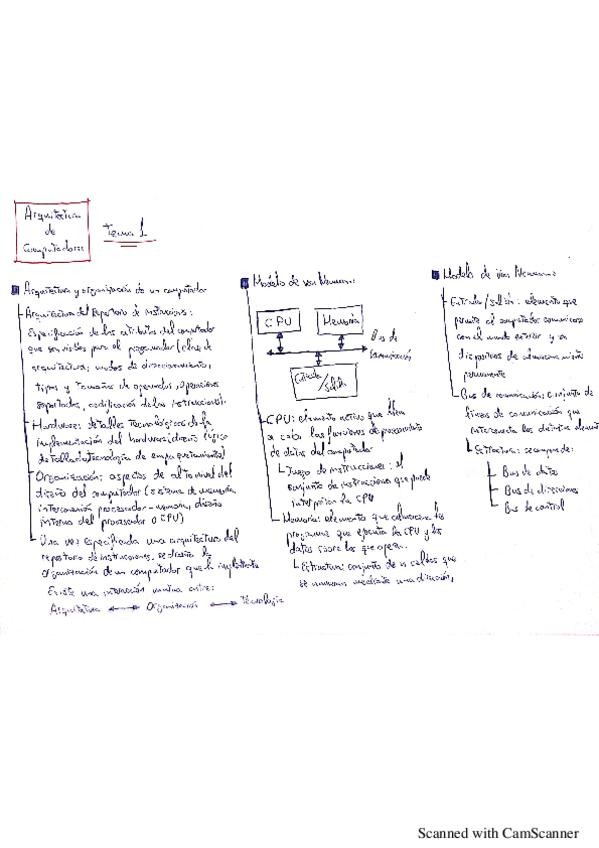 Arquitectura
de
Computadores
Tema 1
Arquitectura y organización de un computador
Arquitectura del Repertorio de instrucciones:
Especificación de los atributos del computador
que son vistos por el programador (clase de
arquitectura, modos de direccionamiento,
tipos y tamaños de operandos, operaciones
soportadas, codificación de las instrucciones).
Hardware: detalles tecnológicos de la
implementación del hardware (diseño lógico
detallado, tecnología de empaquetamiento)
Organización: aspectos de alto nivel del
diseño del computador (sistema de memoria,
interconexión procesador-memoria, diseño
interno del procesador o CPU)
Una vez especificada una arquitectura del
repertorio de instrucciones, se diseña la
organización de un computador que la implemente
Existe una interacción continua entre:
Arquitectura Organización Tecnología
Modelo de von Neumann:
CPU
Memoria
Bus de
Comunicación
Entrada
/Salida
CPU: elemento activo que lleva
a cabo las funciones de procesamiento
de datos del computador
Juego de instrucciones: el
conjunto de instrucciones que puede
interpretar la CPU
Memoria: elemento que almacena los
programas que ejecuta la CPU y los
datos sobre los que opera.
Estructura: conjunto de n celdas que
se numeran mediante una dirección,
Modelo de von Neumann:
Entrada/Salida: elemento que
permite al computador comunicarse
con el mundo exterior y a
dispositivos de almacenamiento
permanente
Bus de comunicación: Conjunto de
líneas de comunicación que
interconecta los distintos elementos
Estructura: se compone de:
Bus de datos
Bus de direcciones
Bus de control
Scanned with CamScanner